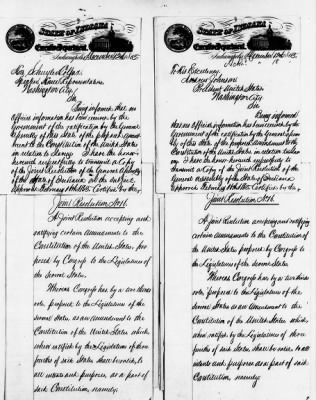 STATE OF INDIANA
Executive Department,
Indianapolis, December 12th 1865
Hon. Schuyler Colfax
Speaker House Representatives
Washington City
Sir
Being informed that no
official information has been received by the
Government of the ratification by the General
Assembly of this State, of the proposed Amendment
to the Constitution of the United States, in
relation to Slavery I have the honor
herewith respectfully to transmit a Copy
of the Joint Resolution of the General Assembly
of the State of Indiana
Approved February
Joint Resolution No 16.
A Joint Resolution accepting and
ratifying certain amendments to the
Constitution of the United States, pro-
posed by Congress to the Legislatures of
the several States.
Whereas Congress has by a two thirds
vote, proposed to the Legislatures of the
several States, as an amendment to the
Constitution of the United States which
when ratified by the Legislatures of three fourths
of said States shall be valid, to
all intents and purposes, as a part of
said Constitution, namely:
STATE OF INDIANA
Executive Department,
Indianapolis, December 12th 1865
To His Excellency
Andrew Johnson
President United States
Washington City
Sir
Being informed
that no official information has been received by the
Government of the ratification by the General Assem-
bly of this State of the proposed Amendment to the
Constitution of the United States, in relation to Slav-
ery I have the honor herewith respectfully to
transmit a Copy of the Joint Resolution of the
General Assembly of the State of Indiana
Approved February
Joint Resolution No 16.
A Joint Resolution accepting and ratifying
certain amendments to the Constitution of
the United States, proposed by Congress to
the Legislatures of the several States.
Whereas Congress has by a two thirds
vote, proposed to the Legislatures of the several
States, as an amendment to the
Constitution of the United States which,
when ratified by the Legislatures of three
fourths of said States, shall be valid to all
intents and purposes as a part of
said Constitution, namely: